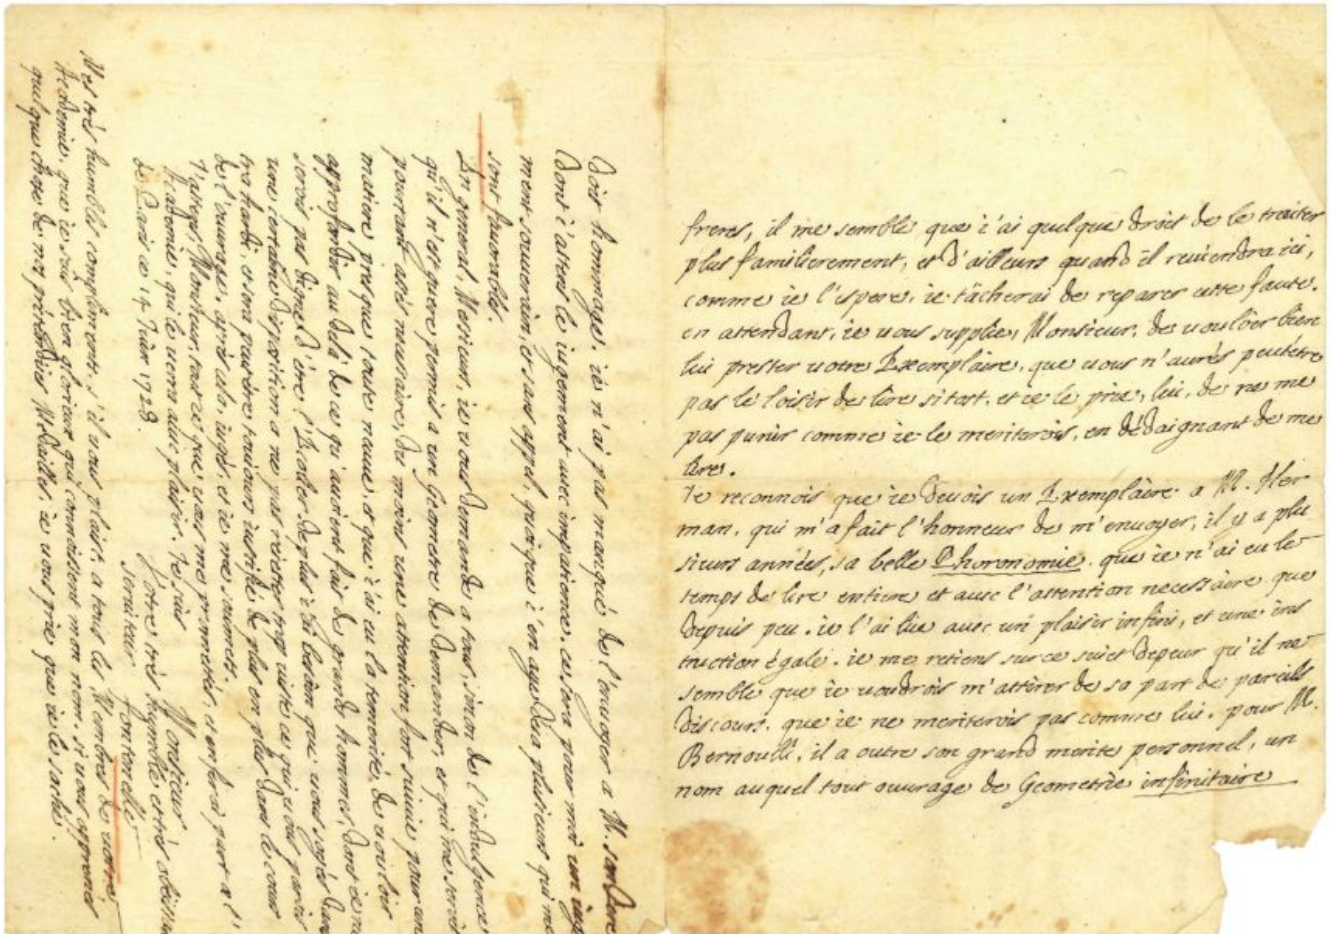 freres, il me semble que i'ai quelque droit de le traiter
plus familierement, et d'ailleurs quand il reviendra ici,
comme ie l'espere, ie tâcherai de reparer cette faute.
en attendant, ie vous supplie, Monsieur, de vouloir bien
lui prester votre Exemplaire, que vous n'aurés peutétre
pas le loisir de lire si tost, et ie le prie, lui, de ne me
pas punir comme ie le meriterois, en dédaignant de me
lire.
Je reconnois que ie devois un Exemplaire a M. Her
man, qui m'a fait l'honneur de m'envoyer, il y a plu
sieurs années, sa belle Phoronomie. que ie n'ai eu le
temps de lire entiere et avec l'attention necessaire que
depuis peu. ie l'ai lüe avec un plaisir infini, et une ins
truction égale. ie me retiens sur ce suiet depeur qu'il ne
semble que ie voudrois m'attirer de sa part de pareils
discours, que ie ne meriterois pas comme lui. pour M.
Bernoulli, il a outre son grand merite personnel, un
nom auquel tout ouvrage de Geometrie infinitaire
doit hommage. ie n'ai pas manqué de l'envoyer a M. son Pere
dont i'attens le iugement avec impatience. ce sera pour moi un iuge
ment souverain, et sans appel, quoique i'en aye deia plusieurs qui me
sont favorables.
En general, Messieurs, ie vous demande a tous, sinon de l'indulgence
qu'il n'est guere permis a un Geometre de demander, et qui me seroit
pourtant assés necessaire, du moins une attention fort suivie pour une
matiere presque toute neuve, et que i'ai eu la temerité de vouloir
approfondir au delà de ce qu'avoient fait de grands hommes, dont ie ne
serois pas digne d'étre l'Ecolier. de plus i'ai besoin que vous soyés dans
une certaine disposition a ne pas reietter trop viste ce qui vous paroi
tra hardi, et sera peutétre touiours iustifié de plus en plus dans le cours
de l'ouvrage. aprés cela, iugés, et ie me soumets.
J'attens, Monsieur, tout ce que vous me promettés, et en ferai part a l'
Academie, qui le verra avec plaisir. Je suis Monsieur
Votre trés humble et trés obéissant
de Paris ce 14 1728. serviteur Fontenelle
Mes trés humbles complimens, s'il vous plaist, a tous les Membres de votre
Academie, que ie sois bien glorieux qui connoissent mon nom. si vous apprenés
quelque chose de nos prétendües Medailles, ie vous prie que ie le sache.